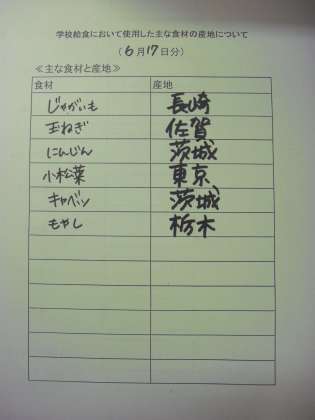 学校給食において使用した主な食材の産地について
(6月17日分)
≪主な食材と産地≫
食材 産地
じゃがいも 長崎
玉ねぎ 佐賀
にんじん 茨城
小松菜 東京
キャベツ 茨城
もやし 栃木